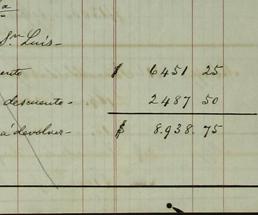 Sn Luis-
$ 6451 25
descuento- 2487 50
a devolver- $ 8.938. 75